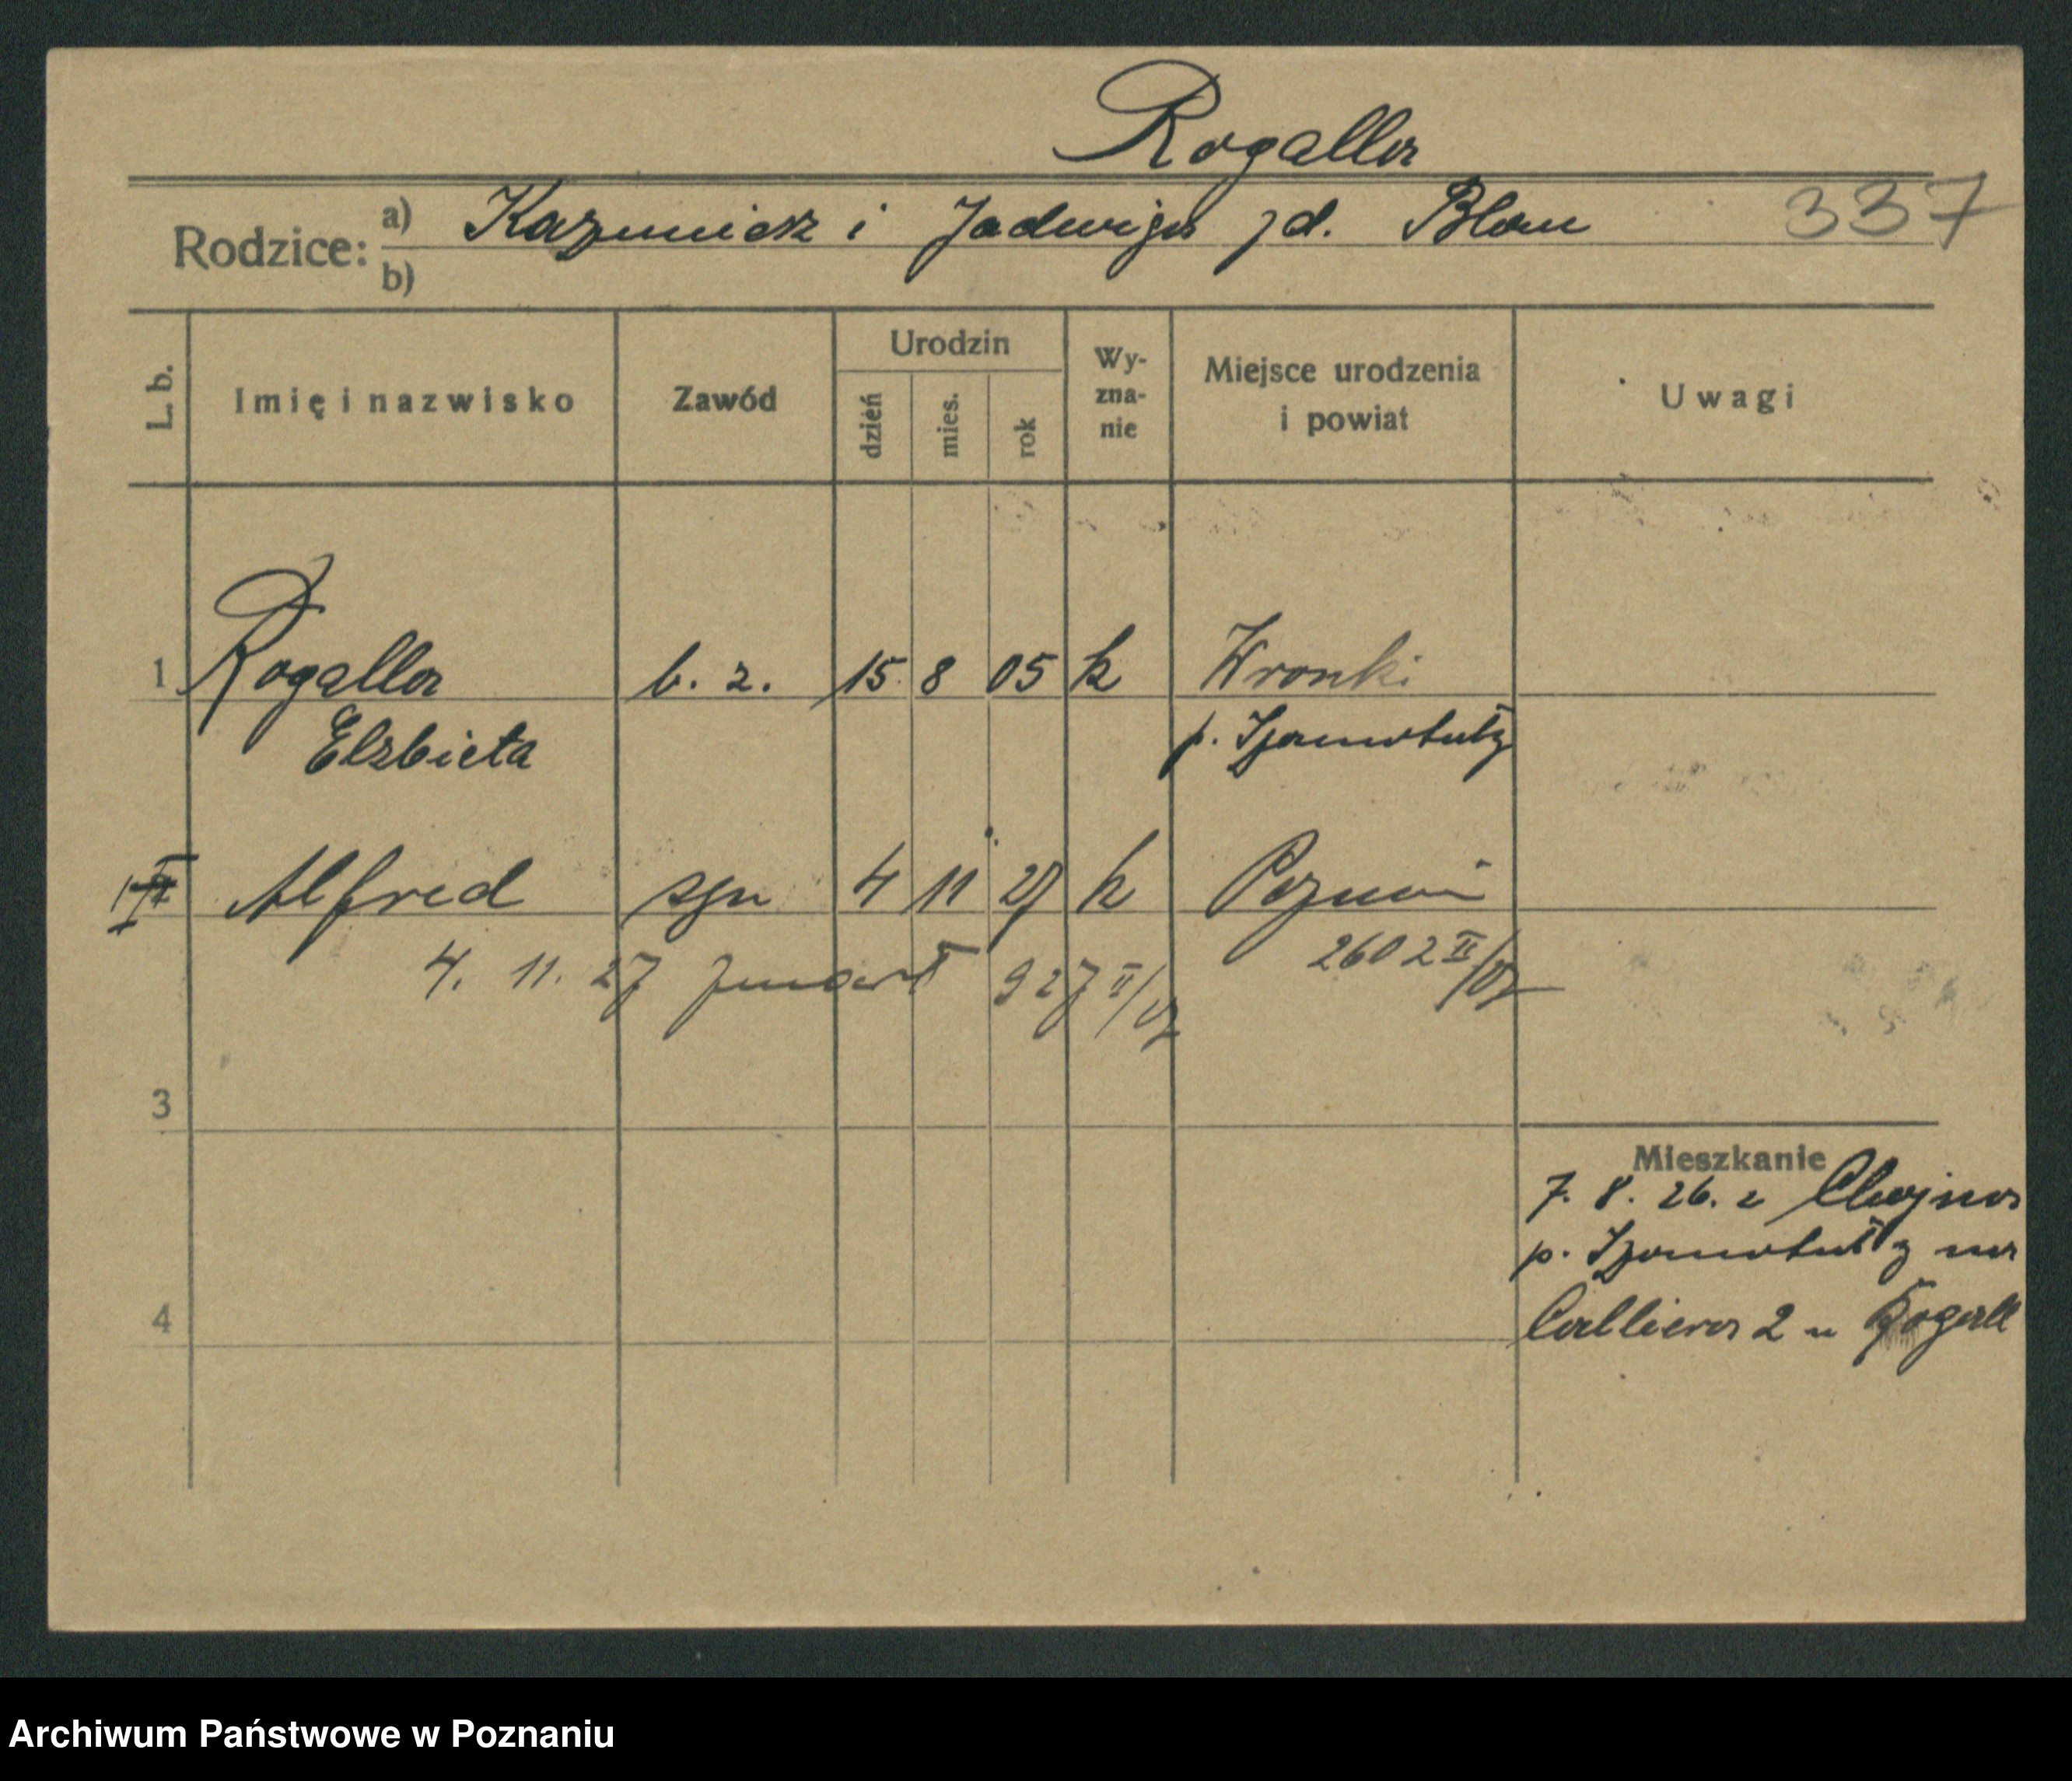 Rogalla
Rodzice: a) Kazimierz i Jadwiga zd. Blau 337
b)
L. b. Imię i nazwisko Zawód Urodzin dzień mies. rok Wy-zna-nie Miejsce urodzenia i powiat Uwagi
1 Rogalla b. z. 15 8 05 k Wronki
Elzbieta p. Szamotuły
II Alfred syn 4 11 27 k Poznań
2602 II/27
4. 11. 27 zmarł 927 II/27
3
Mieszkanie
7. 8. 26. z Chojna
p. Szamotuły na
4 Calliera 2 u Rogall
Archiwum Państwowe w Poznaniu